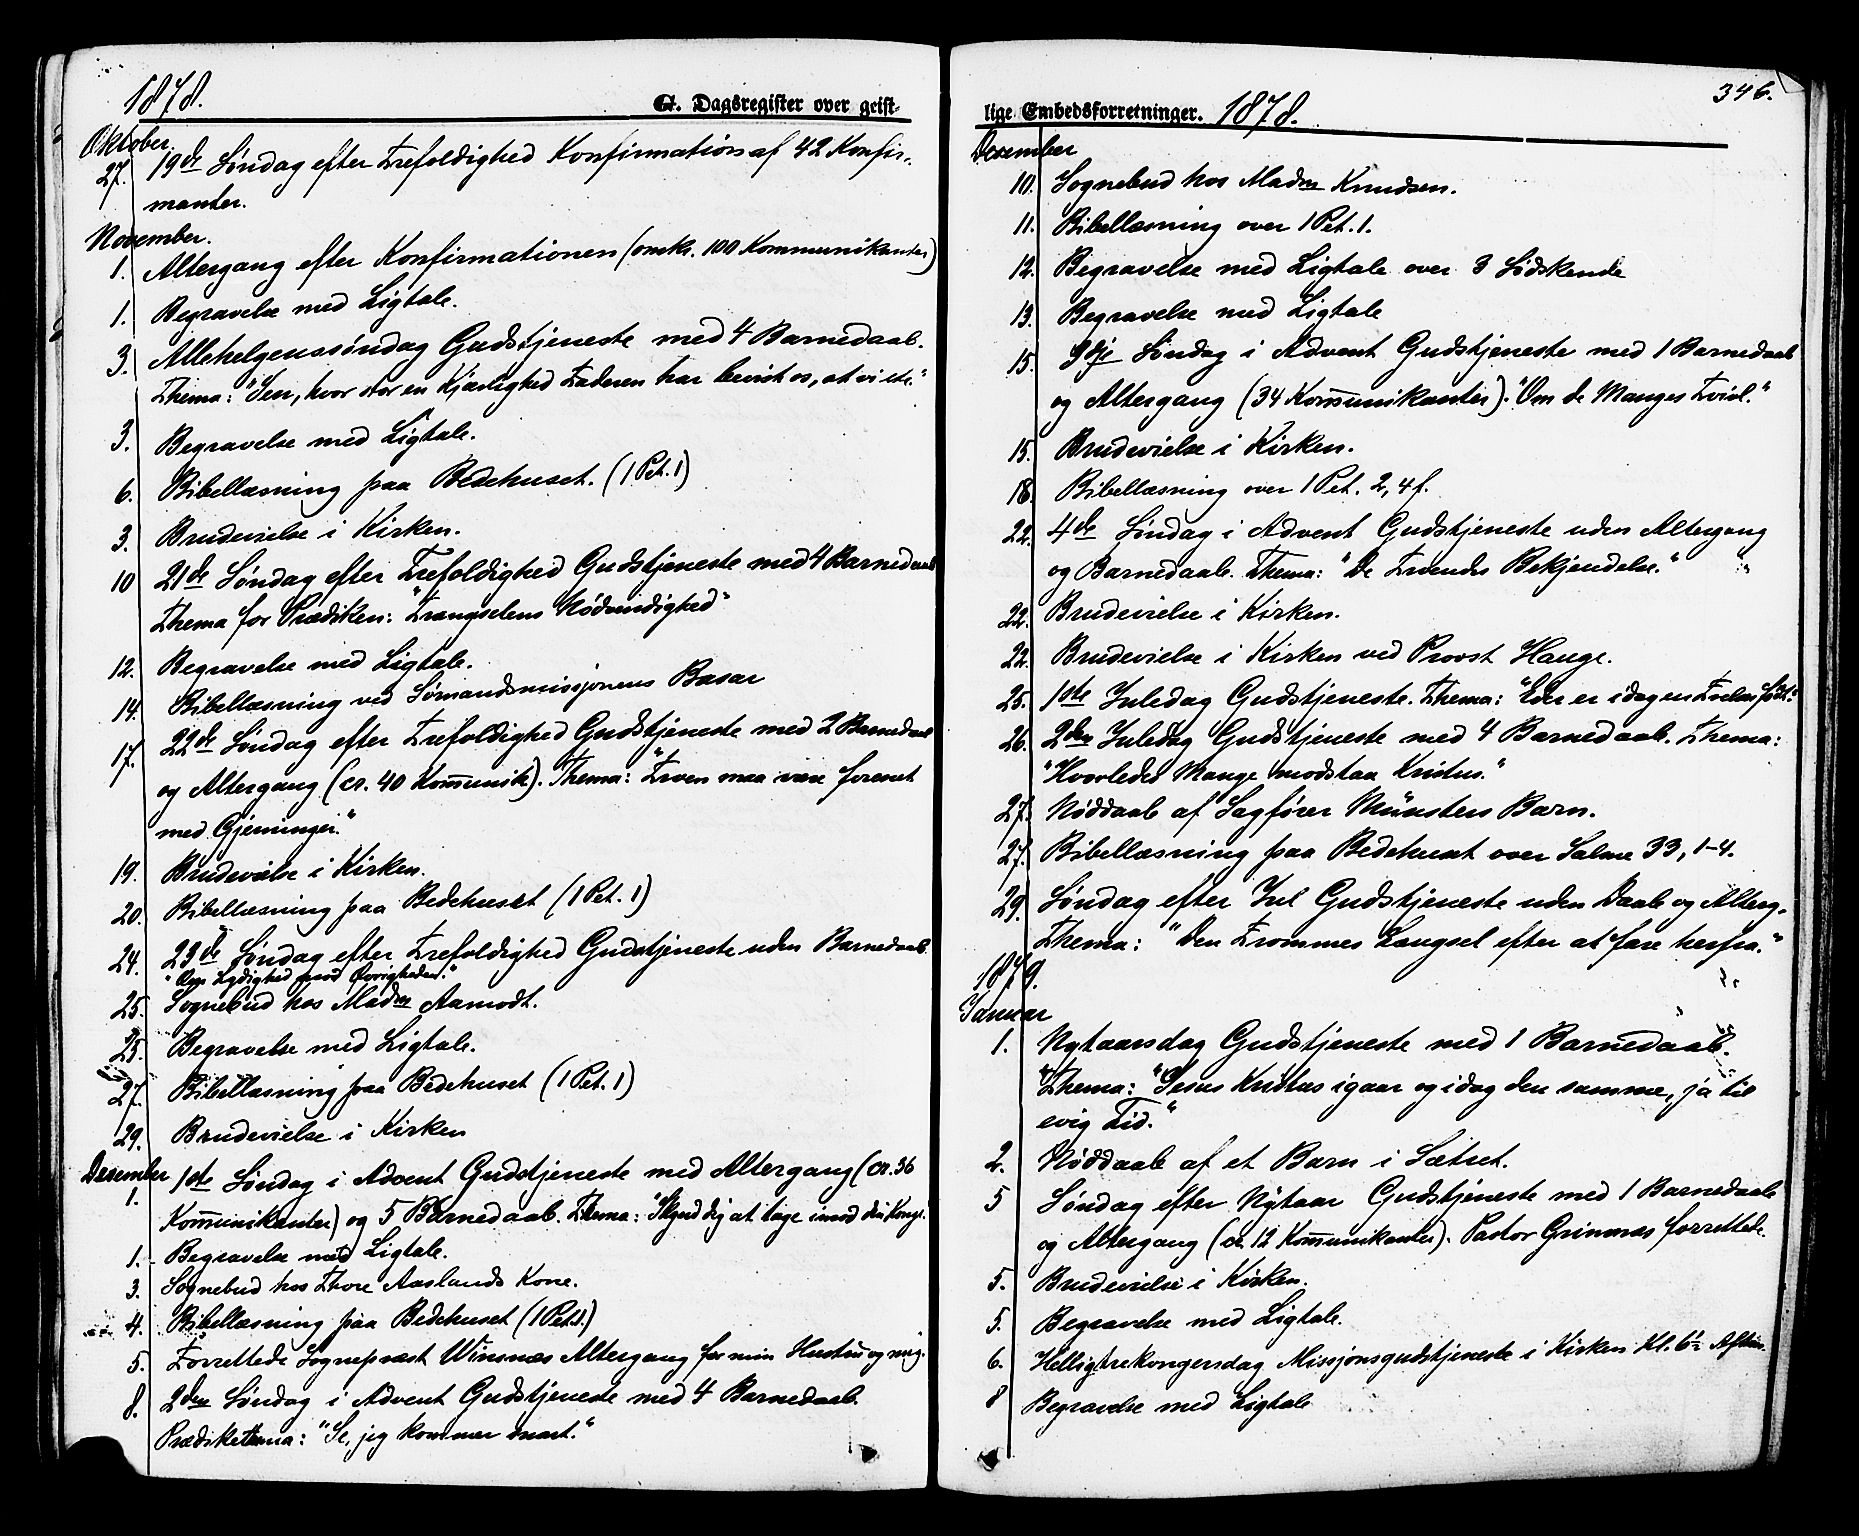 1878.
G. Dagsregister over geist-
Oktober
27. 19de Søndag efter Trefoldighed Konfirmation af 42 Konfir-
manter.
November.
1. Altergang efter Konfirmationen (omkr. 100 Kommunikanter)
1. Begravelse med Ligtale.
3. Allehelgenssøndag Gudstjeneste med 4 Barnedaab.
Thema: "Sen, hvor stor en Kjærlighed Faderen har bevist os, at vi etc."
3. Begravelse med Ligtale.
6. Bibellæsning paa Bedehuset. (1 Pet. 1)
3. Brudevielse i Kirken.
10 21de Søndag efter Trefoldighed Gudstjeneste med 4 Barnedaab
Thema for Prædiken: "Trængselens Nødvendighed"
12. Begravelse med Ligtale.
14. Bibellæsning ved Sømandsmissjonens Basar
17. 22de Søndag efter Trefoldighed Gudstjeneste med 2 Barnedaab
og Altergang (cr. 40 Kommunik). Thema: "Troen maa være forenet
med Gjerninger."
19. Brudevielse i Kirken.
20. Bibellæsning paa Bedehuset (1 Pet. 1)
24. 23de Søndag efter Trefoldighed Gudstjeneste uden Barnedaab
"Om Lydighed mod Øvrigheden."
25. Sognebud hos Madm Aamodt.
25. Begravelse med Ligtale.
27. Bibellæsning paa Bedehuset (1 Pet. 1)
29. Brudevielse i Kirken
Desember
1. 1ste Søndag i Advent Gudstjeneste med Altergang (cr. 36
Kommunikanter) og 5 Barnedaab. Thema: "Skynd dig at tage imod din Konge.
1. Begravelse med Ligtale.
3. Sognebud hos Thore Aaslands Kone.
4. Bibellæsning paa Bedehuset (1 Pet. 1)
5. Forrettede Sogneprest Winsnes Altergang for min Hustru og mig.
8. 2den Søndag i Advent Gudstjeneste med 4 Barnedaab.
Prædiketema: "Se, jeg kommer snart."
lige Embedsforretninger. 1878.
346.
Desember
10. Sognebud hos Madm Knudsen.
11. Bibellæsning over 1 Pet. 1.
12. Begravelse med Ligtale over 3 Sødskende
13. Begravelse med Ligtale
15. 3dje Søndag i Advent Gudstjeneste med 1 Barnedaab
og Altergang (34 Kommunikanter). "Om de Manges Tvivl."
15. Brudevielse i Kirken.
18. Bibellæsning over 1 Pet. 2, 4 f.
22. 4de Søndag i Advent Gudstjeneste uden Altergang
og Barnedaab. Thema: "De Troendes Bekjendelse."
22. Brudevielse i Kirken.
22. Brudevielse i Kirken ved Provst Hauge.
25. 1ste Juledag Gudstjeneste. Thema: "Eder er idag en Frelser født."
26. 2den Juledag Gudstjeneste med 4 Barnedaab. Thema:
"Hvorledes Mange modstaa Kristus."
27. Nøddaab af Sagfører Münsters Barn.
27. Bibellæsning paa Bedehuset over Salme 33, 1-4.
29. Søndag efter Jul Gudstjeneste uden Daab og Alterg.
Thema: "Den Frommes Længsel efter at fare herfra."
1879.
Januar
1. Nytaarsdag Gudstjeneste med 1 Barnedaab.
Thema: "Jesus Kristus igaar og idag den samme, ja til
evig Tid."
2. Nøddaab af et Barn i Sætret.
5 Søndag efter Nytaar Gudstjeneste med 1 Barnedaab
og Altergang (cr. 12 Kommunikanter). Pastor Grimnæs forrettede.
5. Brudevielse i Kirken.
5. Begravelse med Ligtale.
6. Helligtrekongersdag Missjonsgudstjeneste i Kirken Kl. 6½ Aften.
8 Begravelse med Ligtale